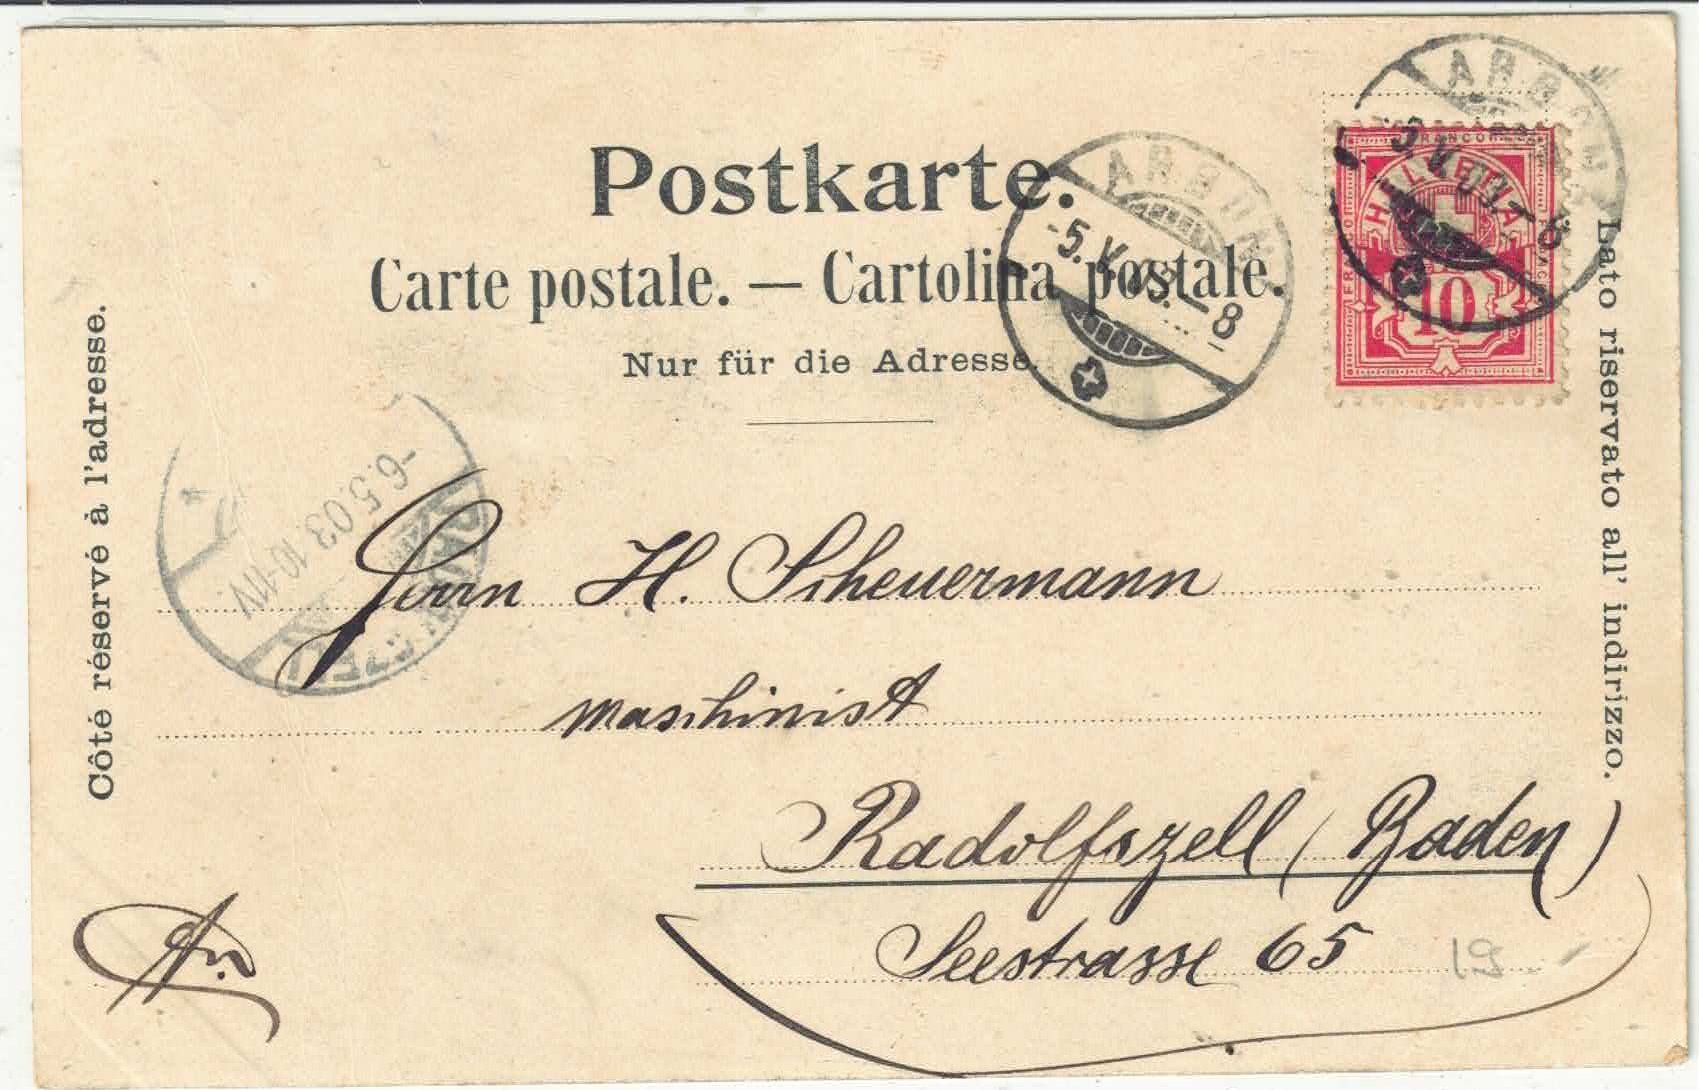 Postkarte.
Carte postale. — Cartolina postale.
Nur für die Adresse.
Côté réservé à l'adresse.
Lato riservato all' indirizzo.
ARBON
-5.V.03.–8
ARBON
-5.V.03.–8
FRANCO
HELVETIA
10
RADOLFZELL
-6.5.03.10-11V
Herrn H. Scheuermann
Maschinist
Radolfszell (Baden)
Seestrasse 65
19